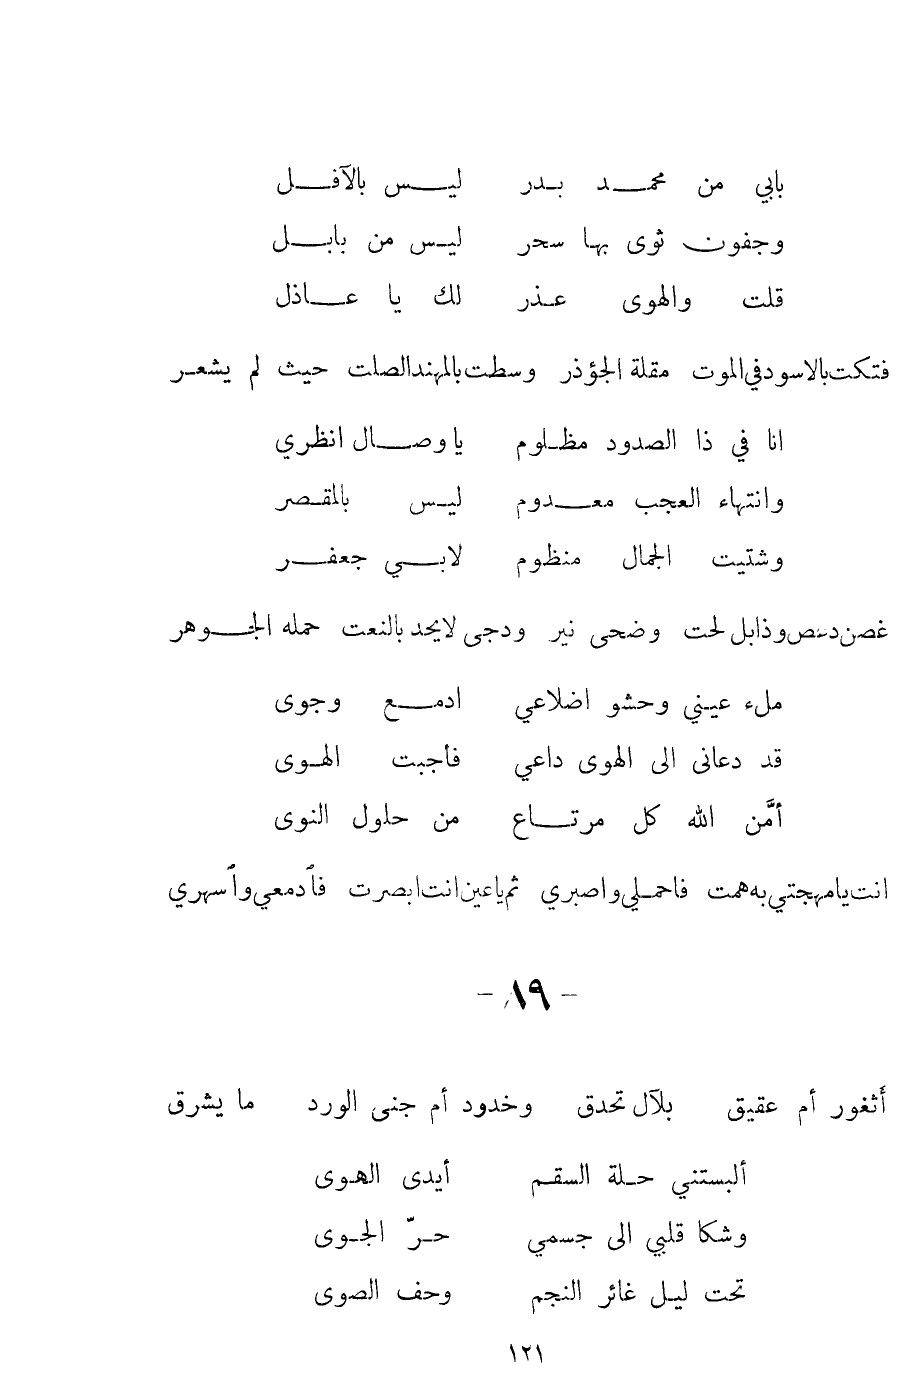 بابي من محمد بدر ليس بالآفل
وجفون ثوى بها سحر ليس من بابل
قلت والهوى عذر لك يا عاذل
فتكت بالاسود في الموت مقلة الجؤذر وسطت بالمهند الصلت حيث لم يشعر
انا في ذا الصدود مظلوم يا وصال انظري
وانتهاء العجب معدوم ليس بالمقصر
وشتيت الجمال منظوم لابي جعفر
غصن دعص وذابل لحت وضحى نير ودجى لايحد بالنعت حمله الجوهر
ملء عيني وحشو اضلاعي ادمع وجوى
قد دعانى الى الهوى داعي فأجبت الهوى
أمَّن الله كل مرتاع من حلول النوى
انت يا مهجتي به همت فاحملي واصبري ثم يا عين انت ابصرت فأدمعي وأسهري
- ١٩ -
أثغور أم عقيق بلآل تحدق وخدود أم جنى الورد ما يشرق
ألبستني حلة السقم أيدى الهوى
وشكا قلبي الى جسمي حرّ الجوى
تحت ليل غائر النجم وحف الصوى
١٢١